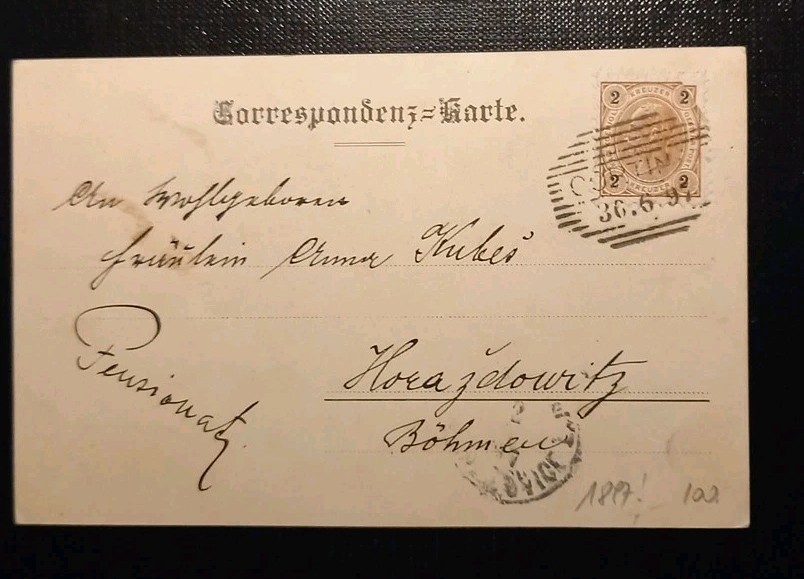 Correspondenz=Karte.
2 KREUZER 2
2 KREUZER 2
30.6.97
An Wohlgeboren
Fräulein Anna Kubeš
Pensionat
Horaždowitz
Böhmen
1897! 100.